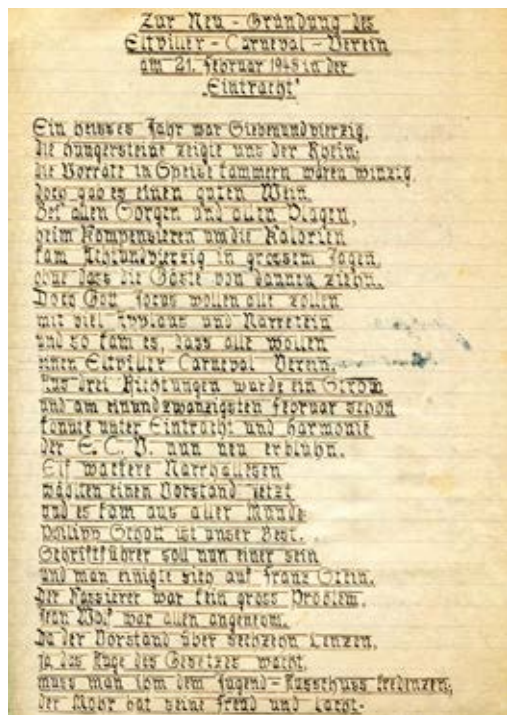 Zur Neu-Gründung des
Eltviller-Carneval-Verein
am 21. Februar 1948 in der
"Eintracht"
Ein heisses Jahr war Siebenundvierzig,
die Hungersteine zeigte uns der Rhein;
die Vorräte in Speisekammern waren winzig,
doch gab es einen guten Wein.
Bei allen Sorgen und allen Plagen,
beim Kompensieren um die Kalorien
kam Achtundvierzig in grossem Jagen,
ohne dass die Gäste von dannen ziehn.
Doch Gott Jocus wollen alle zollen
mit viel Applaus und Narretein
und so kam es, dass alle wollen
einen Eltviller Carneval Verein.
Aus drei Richtungen wurde ein Strom
und am einundzwanzigsten Februar schon
konnte unter Eintracht und Harmonie
der E.C.V. nun neu erblühn.
Elf wackere Narrhallesen
wählten einen Vorstand jetzt
und es kam aus aller Munde
Philipp Schott ist unser Best.
Schriftführer soll nun einer sein
und man einigte sich auf Franz Stein.
Der Kassierer war kein gross Problem,
Jean war allen angenehm.
Da der Vorstand über sechzehn Lenzen,
ja das Auge des Gesetzes wacht,
muss man ihm dem Jugend-Ausschuss kredenzen;
der Mohr hat seine Freud und lacht.